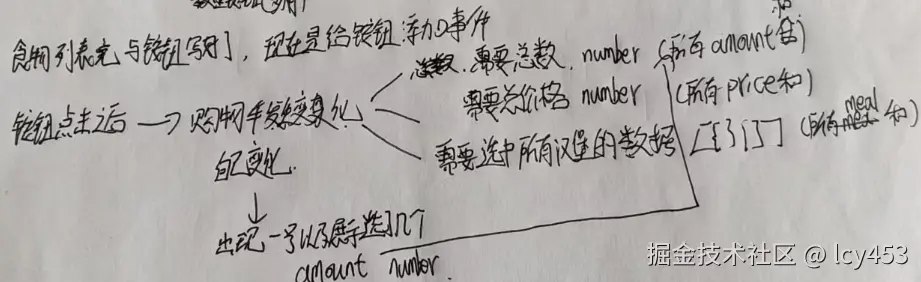 食物列表完与按钮写好了，现在是给按钮添加事件
按钮点击之后 → 购物车数据变化
自己变化
总数，需要总数，number（所有amount和）
需要总价格 number（所有price和）
需要选中所有汉堡的数据 [{}{}]（所有meal和）
出现一号以及展示选了几个
amount number.
掘金技术社区 @ lcy453